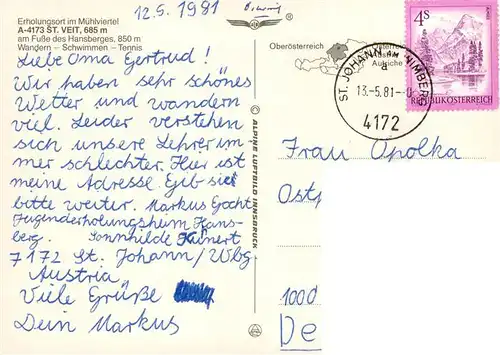 Erholungsort im Mühlviertel
A-4173 ST. VEIT, 685 m
am Fuße des Hansberges, 850 m
Wandern – Schwimmen – Tennis
12.5.1981
Liebe Oma Gertrud!
Wir haben sehr schönes
Wetter und wandern
viel. Leider verstehen
sich unsere Lehrer im-
mer schlechter. Hier ist
meine Adresse. Gib sie
bitte weiter. Markus
Jugenderholungsheim Hans-
berg. Sonnhilde
7172 St. Johann/Wbg.
Austria
Viele Grüße
Dein Markus
© ALPINE LUFTBILD INNSBRUCK
Oberösterreich
Österreich
Autriche
ST. JOHANN AM WIMBERG
a
13.-5.81.-
4172
4S
REPUBLIK ÖSTERREICH
Frau Opolka
Ostp
1000
De